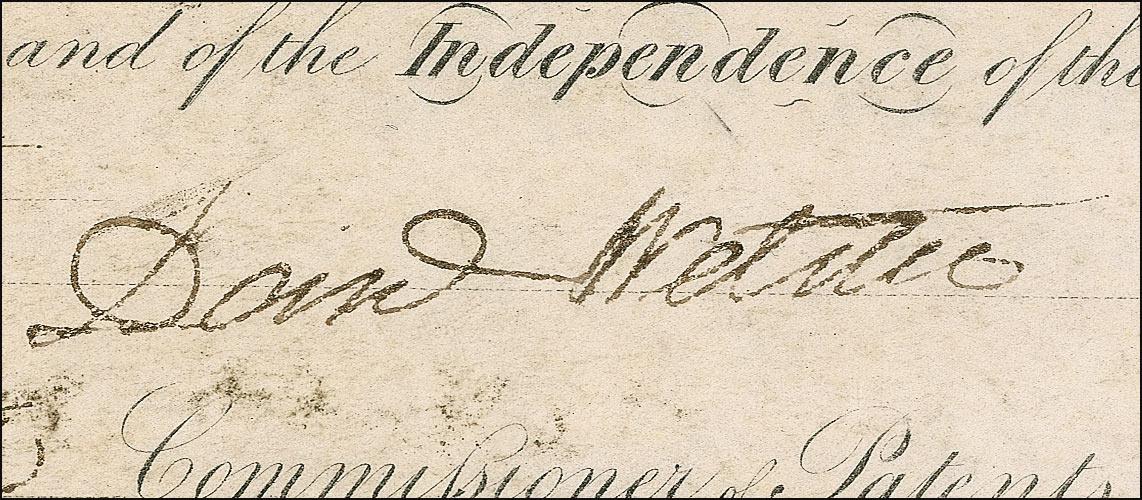 and of the Independence of the
David
Commissioner of Patents